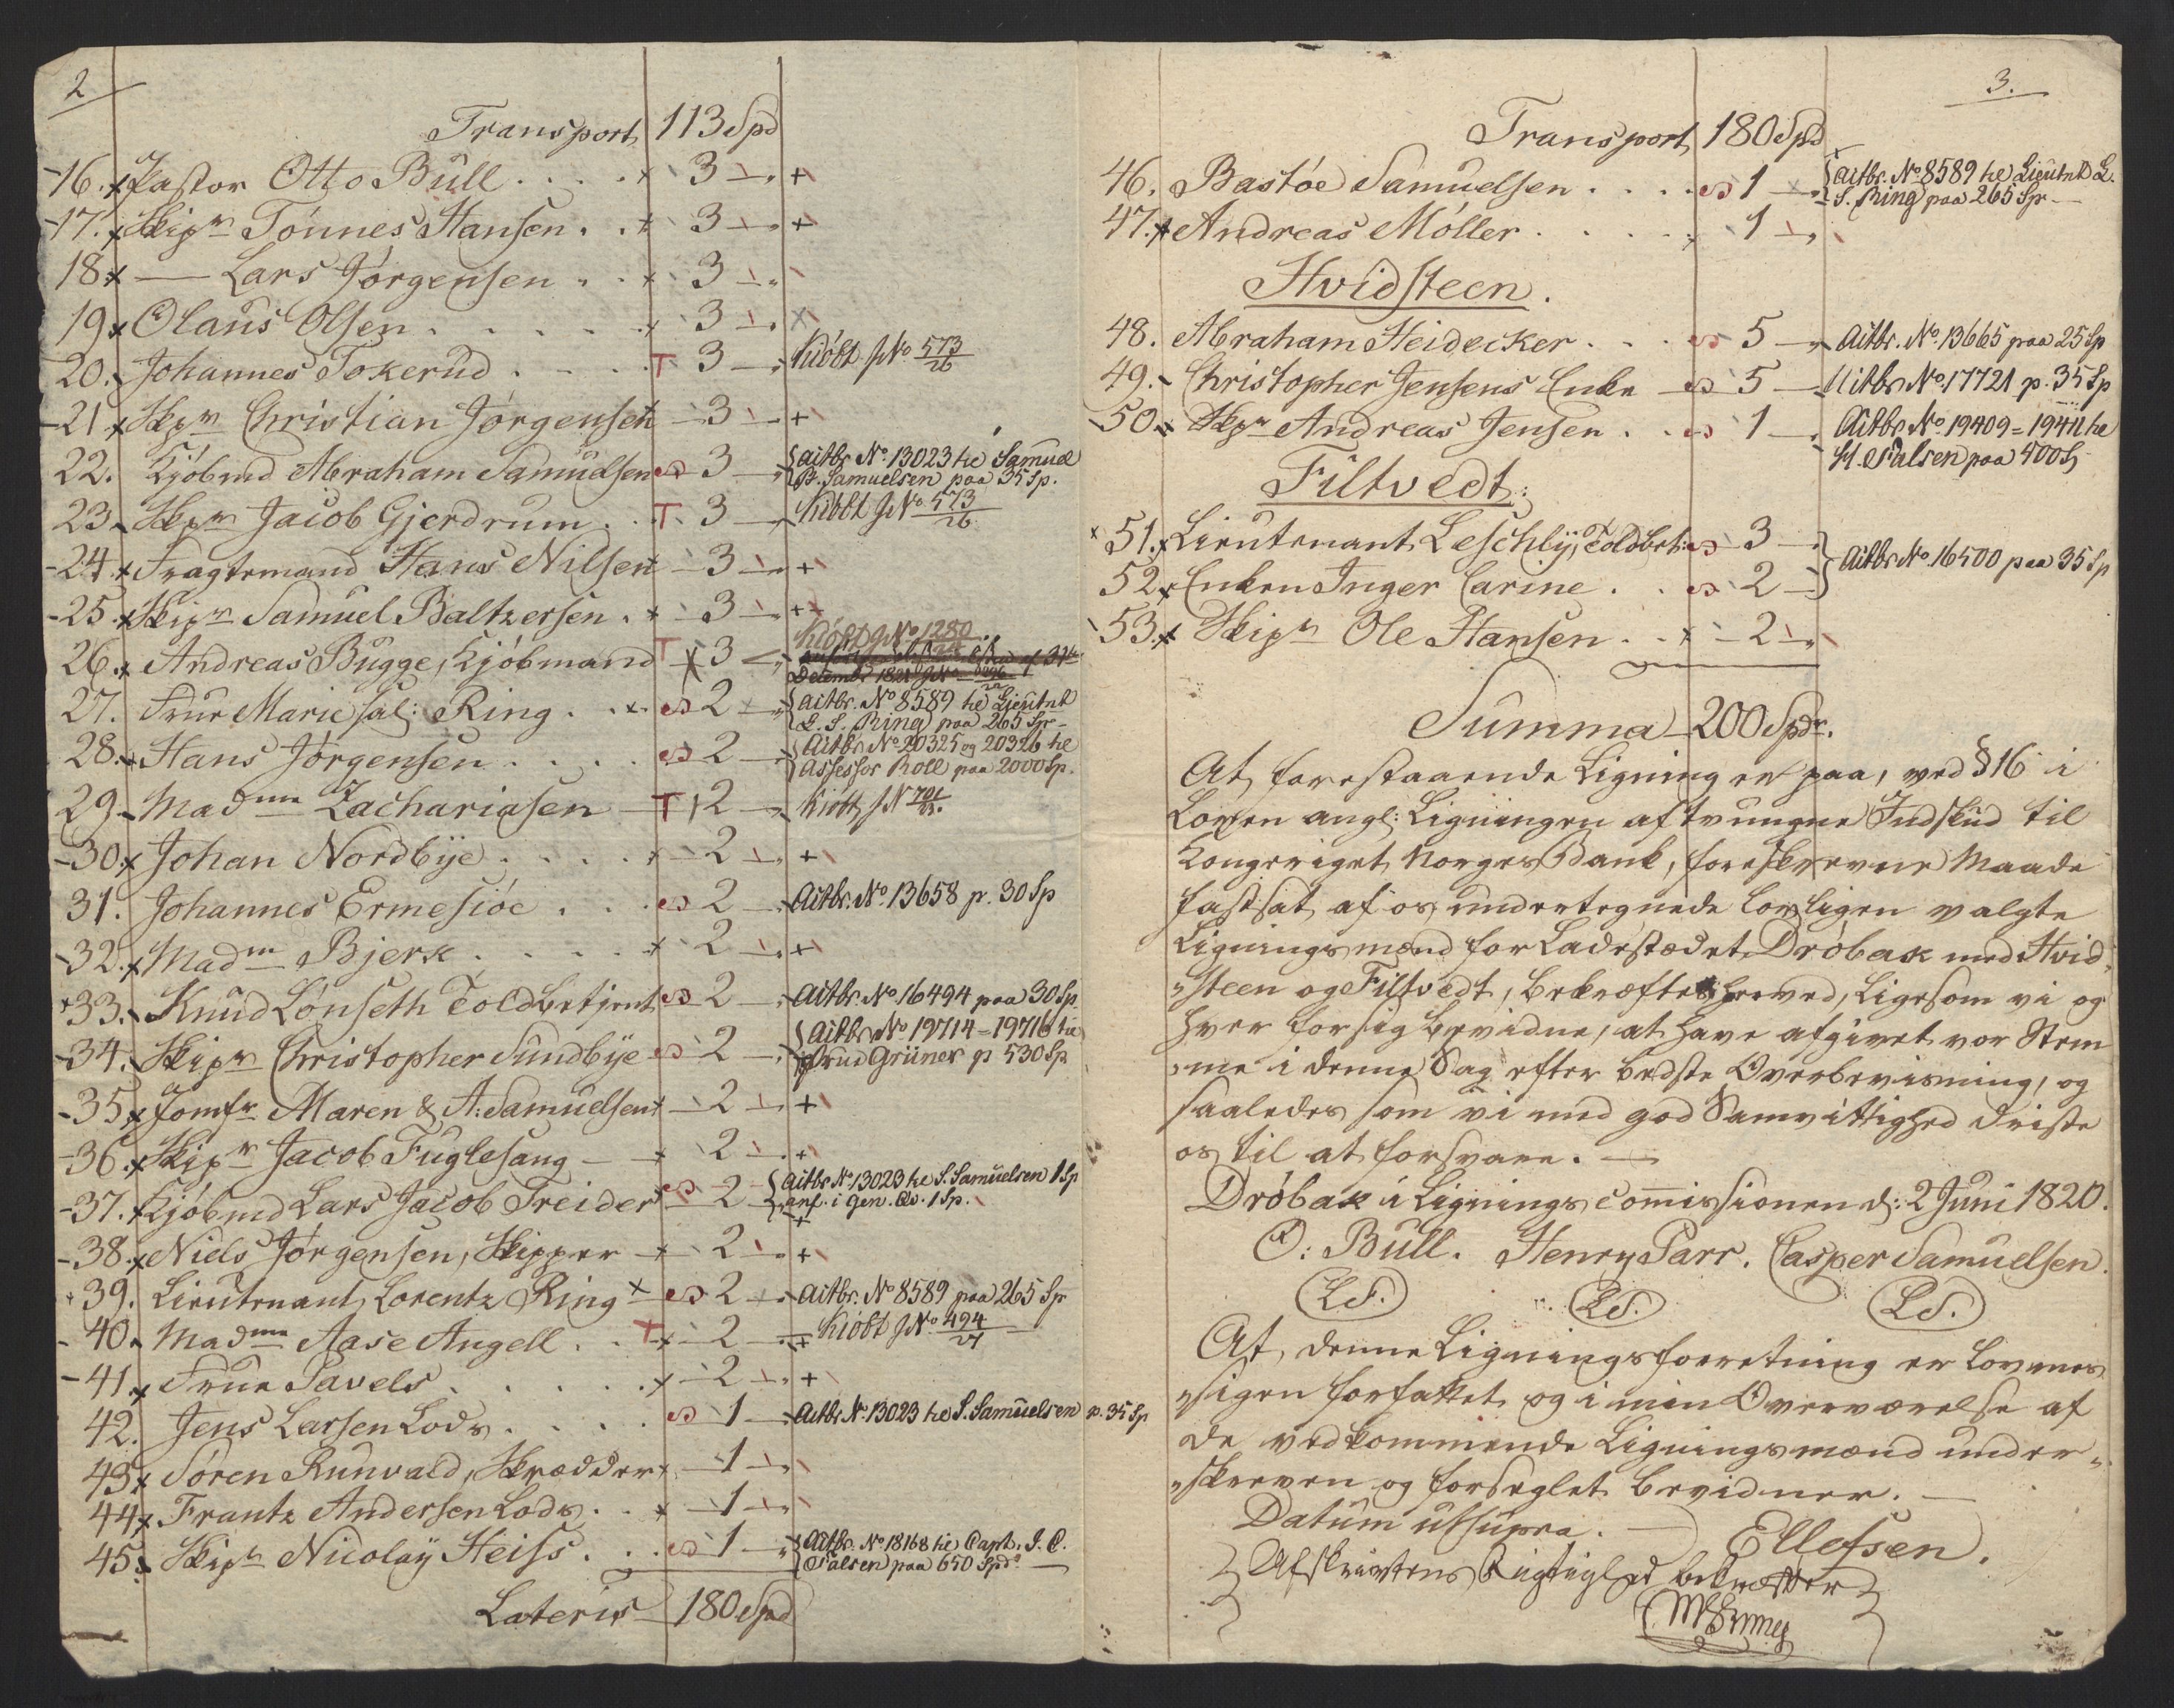 2
Transport 113 Spd
16. Pastor Otto Bull . . . . 3 +
17. Skipr Tönnes Hansen . . 3 +
18 — Lars Jörgensen . . 3
19 Olaus Olsen . . . . . 3
20. Johannes Tokerud . . . . T 3 Kiöbt J No 573/26
21 Skpr Christian Jörgensen 3 +
22. Kjöbmd Abraham Samuelsen 3 Aitbr No 13023 he Samuel
B. Samuelsen paa 35 Sp.
23. Skpr Jacob Gjerdrum . . T. 3 Kiöbt J No 573/26
24 Fragtemand Hans Nilsen 3 +
25 Skipr Samuel Baltzersen . 3 +
26. Andreas Bugge, Kjöbmand T 3 Kiöbt J No 1280
Decembr
27. Frue Marie sal: Ring . . 2 Aitbr. No 8589 he Lieutnt
L. S. Ring paa 265 Spr
28. Hans Jörgensen . . . . 2 Aitbr No 20325 og 20326 he
Assessor Roll paa 2000 Sp.
29. Madme Zachariasen T 2 Kiöbt J N 701/23.
30. Johan Nordbÿe . . . . 2 +
31. Johannes Ermesiöe . . . 2 Aitbr. No 13658 p. 30 Sp
32. Madm Bjerk . . . . . 2 +
33. Knud Lönseth Toldbetjent 2 Aitbr. No 16494 paa 30 Sp
34. Skipr Christopher Sundbÿe 2 Aitbr. No 19714 = 19716 he
Frue Grüner p 530 Sp
35 Jomfr Maren & A. Samuelsen 2 +
36. Skipr Jacob Fuglesang 2 +
37. Kjöbmd Lars Jacob Treider 2 Aitbr No 13023 he S. Samuelsen 1 Sp
anf. i Gen. Qv. 1 Sp.
38. Niels Jörgensen, Skipper 2 +
39. Lieutenant Lorentz Ring 2 Aitbr. No 8589 paa 265 Sp
40. Madme Aase Angell . . T 2 Kiöbt J No 494/27
41. Frue Pavels . . . . . 2 +
42. Jens Larsen Lods . . . . 1 Aitbr N. 13023 he S. Samuelsen p. 35 Sp
43 Sören Runvald, Skrædder 1
44 Frantz Andersen Lods . . 1
45 Skipr Nicolaÿ Heiss . . . 1 Aitbr. No 18168 he Capt. J. C.
Falsen paa 650 Spd
Lateris 180 Spd
3.
Transport 180 Spd
46. Bastöe Samuelsen . . . . 1 Aitbr. No 8589 he Lieutnt L.
S. Ring paa 265 Sp
47. Andreas Möller . . . . . 1
Hvidsteen.
48. Abraham Heidecker . . . 5 Aitbr. No 13665 paa 25 Sp
49. Christopher Jensens Enke 5 Aitbr No 17721 p. 35 Sp
50 Skpr Andreas Jensen . . 1 Aitbr No 19409 = 19411 he
H. Falsen paa 400 S
Filtvedt:
51. Lieutenant Leschlÿ, Toldbetj: 3
Aitbr No 16500 paa 35 Sp
52 Enken Inger Carine . . 2
53. Skipr Ole Hansen . . 2
Summa 200 Spdr.
At forestaaende Ligning er paa, ved § 16 i
Loven angl: Ligningen af tvungne Indskud til
Kongeriget Norges Bank, foreskrevne Maade
fastsat af os undertegnede lovligen valgte
Ligningsmænd for Ladestædet Dröbak med Hvid-
"steen og Filtvedt, bekræftes herved, ligesom vi og
hver for sig bevidne, at have afgivet vor Stem
"me i denne Sag efter bedste Overbeviisning, og
saaledes som vi med god Samvittighed driste
os til at forsvare. —
Dröbak i Ligningscomissionen d: 2 Juni 1820.
O: Bull. Henry Parr. Casper Samuelsen.
L.S. L.S. L.S.
At denne Ligningsforretning er lovmæs
"sigen forfattet og i min Overværelse af
de vedkommende Ligningsmænd under-
"skreven og forseglet bevidner. —
Datum ut supra. —
Ellefsen.
Afskrivtens Rigtighed bekræfter